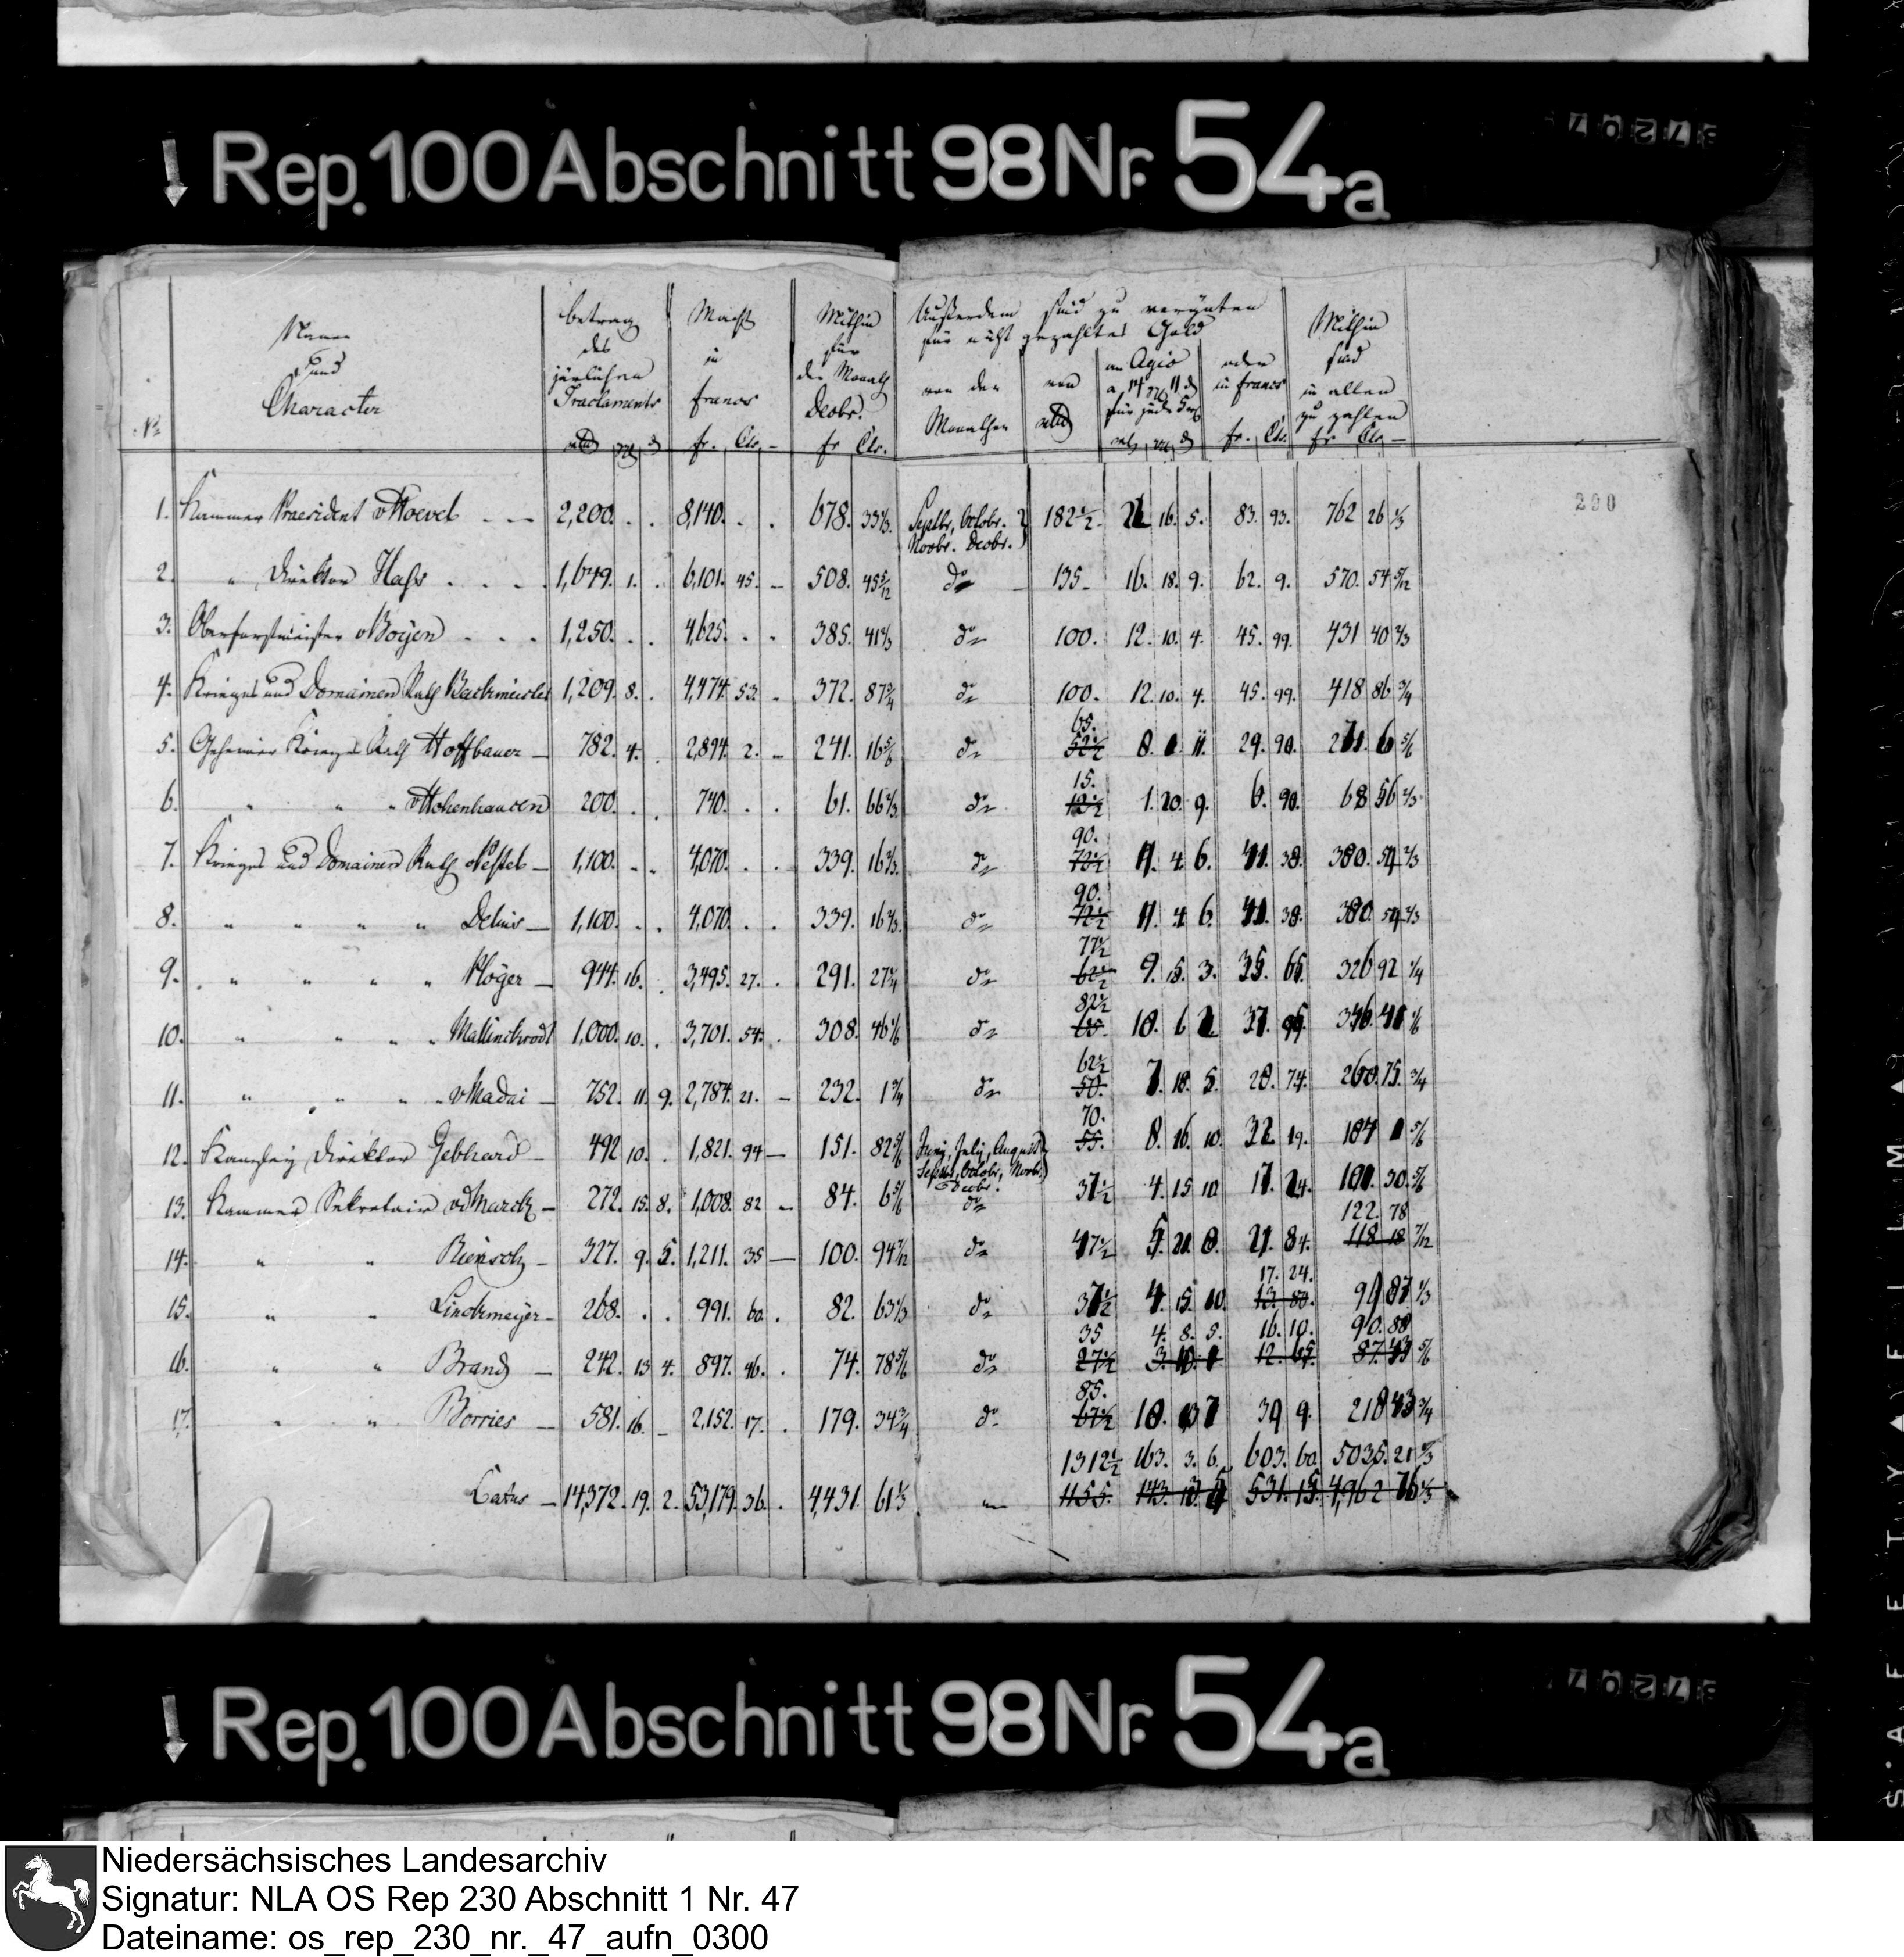 Rep. 100 Abschnitt 98 Nr. 54a
Name und Character
betrag des järlichen Tractaments
Macht in francs
Mithin für den Monath Decbr.
Außerdem sind zu vergüten für nicht gezahltes Gold
von den Monathen
an Agio
oder in francs
Mithin sind in allen zu zahlen
No
fr. Cts.
fr Cts.
fr. Cts.
fr Cts
290
1. Kammer Praesident v Hoevel 2,200. 8,140. 678. 33 1/3. Septbr, Octobr. Novbr. Decbr. 182 1/2. 16. 5. 83. 93. 762 26 1/3
2. " Direktor Hass 1,649. 1. 6,101. 45. 508. 45 5/12 do 135 16. 18. 9. 62. 9. 570. 54 5/12
3. Oberforstmeister v Boyen 1,250. 4,625. 385. 41 2/3 do 100. 12. 10. 4. 45. 99. 431 40 2/3
4. Krieges und Domainen Rath Backmeister 1,209. 8. 4,474. 53. 372. 87 3/4 do 100. 12. 10. 4. 45. 99. 418 86 3/4
5. Geheimer Krieges Rath Hoffbauer 782. 4. 2,894. 2. 241. 16 5/6 do 65. 52 1/2 8. 11. 29. 90. 271. 6 5/6
6. " " " v Hohenhausen 200. 740. 61. 66 2/3. do 15. 12 1/2 1. 20. 9. 6. 90. 68 56 2/3
7. Krieges und Domainen Rath v Pestel 1,100. 4,070. 339. 16 2/3. do 90. 72 1/2 11. 4. 6. 41. 38. 380. 54 2/3
8. " " " " Delius 1,100. 4,070. 339. 16 2/3. do 90. 72 1/2 11. 4. 6. 41. 38. 380. 54 2/3
9. " " " " Ploger 944. 16. 3,495. 27. 291. 27 1/4 do 77 1/2 62 1/2 9. 15. 3. 35. 65. 326 92 1/4
10. " " " " Mallinckrodt 1,000. 10. 3,701. 54. 308. 46 1/6 do 82 1/2 65. 10. 6 37. 346. 41 1/6
11. " " " " v Madai 752. 11. 9. 2,784. 21. 232. 1 3/4 do 62 1/2 50. 7. 18. 5. 28. 74. 260. 75. 3/4
12. Kanzley Direktor Gebhard 492 10. 1,821. 94 151. 82 5/6 Juny, July, August Septbr, Octobr, Novbr. Decbr. 70. 55. 8. 16. 10. 32. 19. 184 1 5/6
13. Kammer Sekretair v d Marck 272. 15. 8. 1,008. 82 84. 6 5/6 do 37 1/2 4. 15 10. 17. 24. 101. 30. 5/6
14. " " Riensch 327. 9. 5. 1,211. 35 100. 94 7/12 do 47 1/2 5. 20. 8. 21. 84. 122. 78 118 18 7/12
15. " " Lindemeyer 268. 991. 60. 82. 63 1/3 do 37 1/2 4. 15. 10. 17. 24. 13. 80. 99 87 1/3
16. " " Brand 242. 13 4. 897. 46. 74. 78 5/6 do 35 27 1/2 4. 8. 5. 16. 10. 12. 65. 90. 88 87. 43 5/6
17. " " Borries 581. 16. 2,152. 17. 179. 34 3/4 do 85. 67 1/2 10. 13 7 39 9. 218 43 3/4
1312 1/2 163. 3. 6. 603. 60. 5035. 21 1/3
Latus 14,372. 19. 2. 53,179. 36. 4,431. 61 1/3 1155. 143. 13. 531. 15. 4,962 76 1/3
Rep. 100 Abschnitt 98 Nr. 54a
Niedersächsisches Landesarchiv
Signatur: NLA OS Rep 230 Abschnitt 1 Nr. 47
Dateiname: os_rep_230_nr._47_aufn_0300